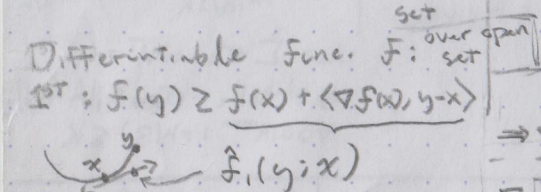 set
Differentiable func. f: over open set
1st: f(y) ≥ f(x) + <∇f(x), y-x>
⇒
y
x
f̂₁(y;x)